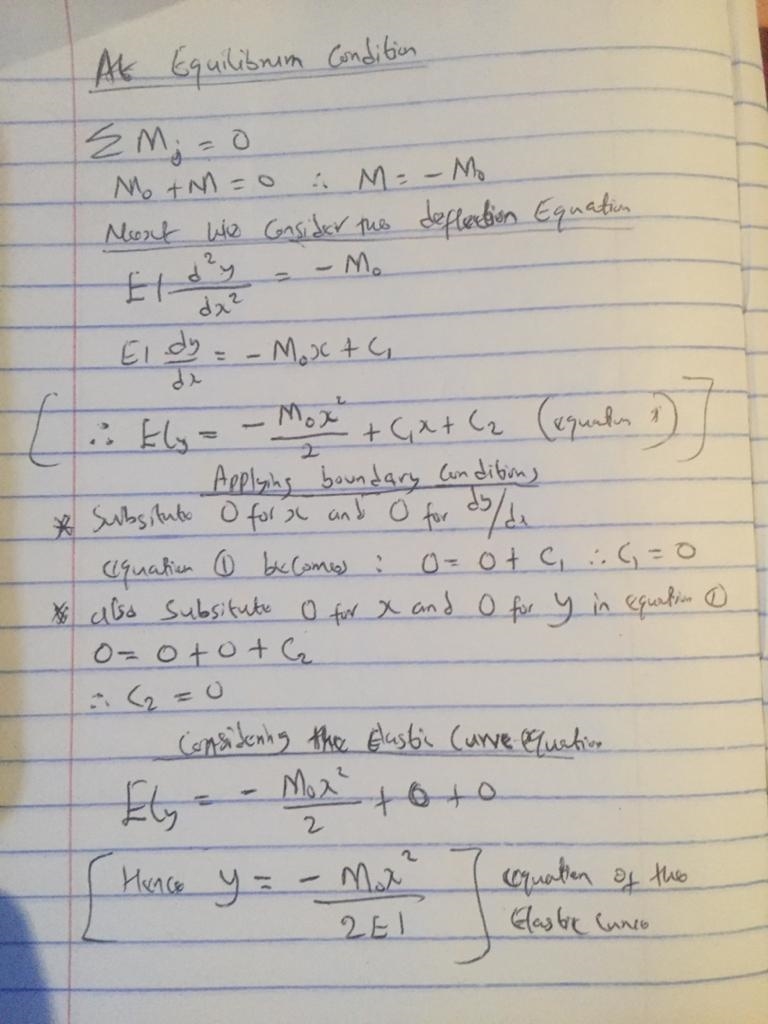 At Equilibrium Condition
ΣMj = 0
M₀ + M = 0 ∴ M = - M₀
Next We Consider the deflection Equation
EI d²y/dx² = - M₀
EI dy/dx = - M₀x + C₁
[∴ EIy = - M₀x²/2 + C₁x + C₂ (equation 1)]
Applying boundary Conditions
* Subsitute 0 for x and 0 for dy/dx
equation ① becomes : 0 = 0 + C₁ ∴ C₁ = 0
* also Subsitute 0 for x and 0 for y in equation ①
0 = 0 + 0 + C₂
∴ C₂ = 0
Considering the Elastic Curve equation
EIy = - M₀x²/2 + 0 + 0
[Hence y = - M₀x²/2EI] equation of the
Elastic Curve